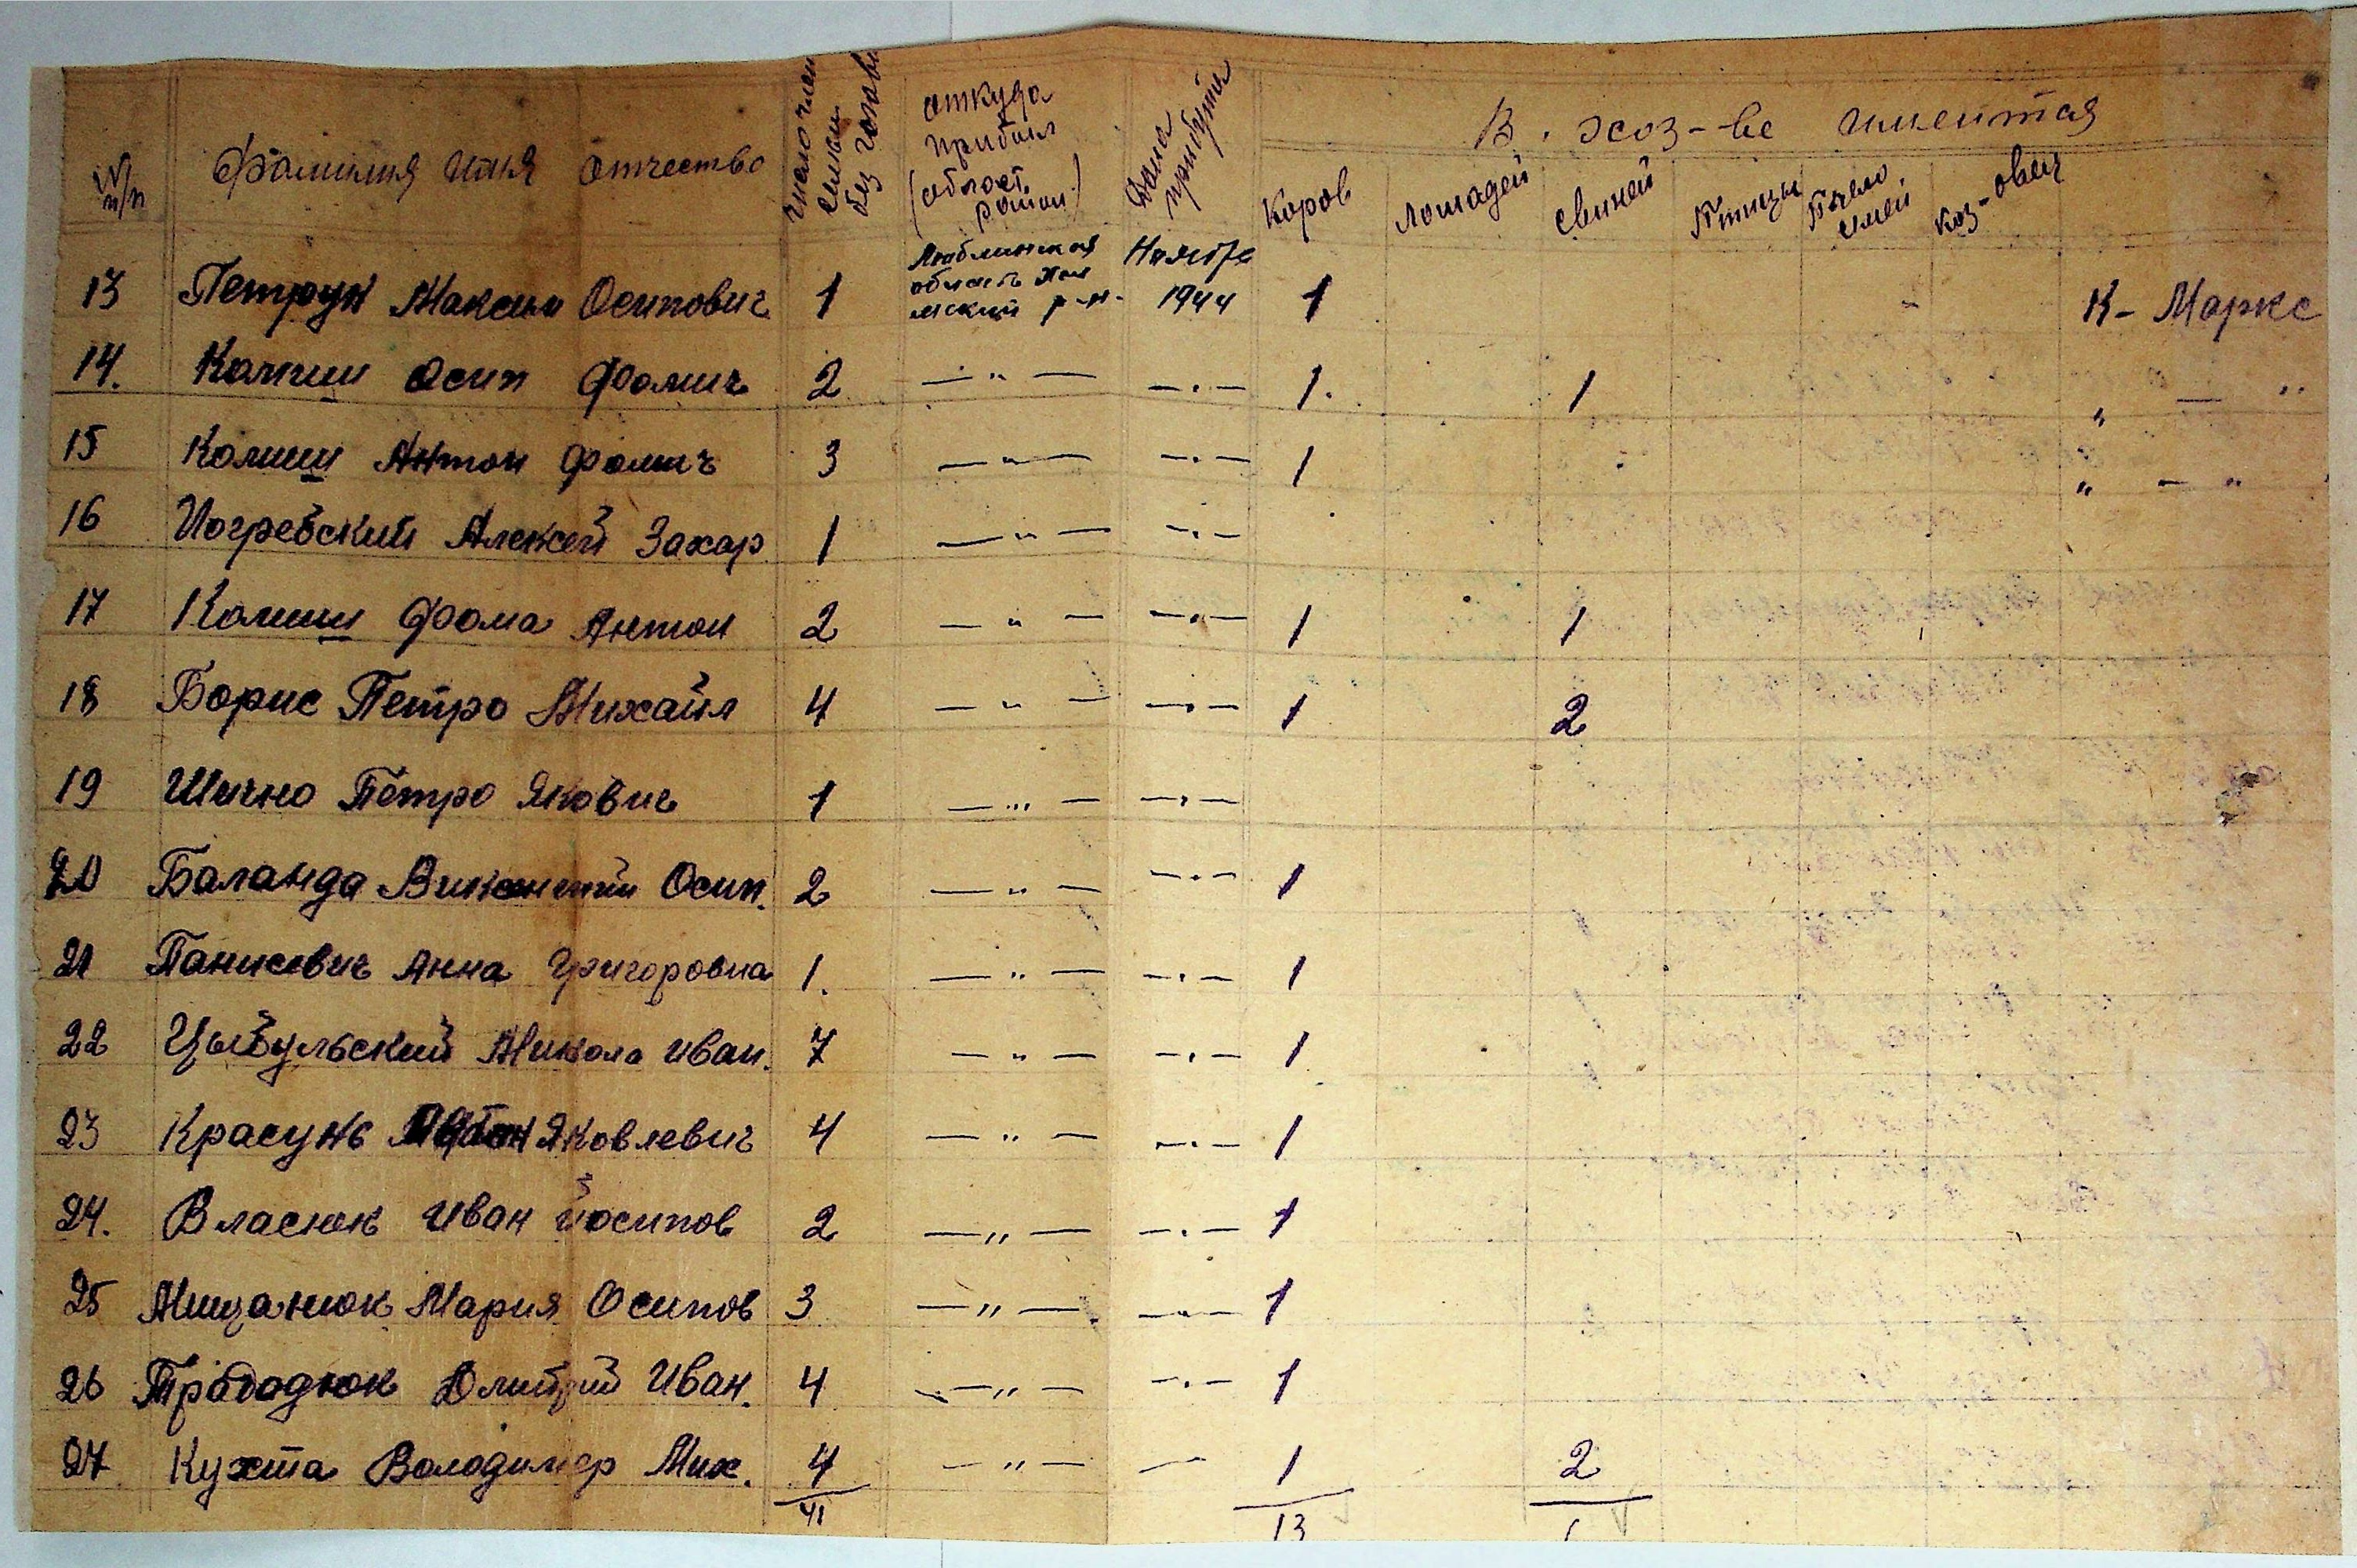 № п/п Фамилия имя отчество число член семьи без головы откуда прибыл (област. район) Дата прибытия В хоз-ве имеится
Коров Лошадей Свиней Птицы Пчело семей Коз-овец
13 Петрук Максим Осипович 1 Люблинская область Холмский р-н. Ноябре 1944 1 К-Маркс
14. Осип Фомич 2 — " — — . — 1. 1 „ — "
15 Калиш Антон Фомич 3 — " — — . — 1 " — "
16 Алексей Захар 1 — " — — . —
17 Калиш Фома Антон 2 — " — — . — 1 1
18 Борис Петро Михайл 4 — " — — . — 1 2
19 Шично Петро Якович 1 — " — — . —
20 Баланда Осип. 2 — " — — . — 1
21 Панисевич Анна Григоровна 1. — " — — . — 1
22 Цыбульский Микола Иван. 7 — " — — . — 1
23 Красунь Яковлевич 4 — " — — . — 1
24. Власюк Иван Йосипов 2 — " — — . — 1
25 Мищанюк Мария Осипов 3 — " — — . — 1
26 Дмитрий Иван. 4 — " — — . — 1
27 Кухта Володимер Мих. 4 — " — — 1 2
41 13